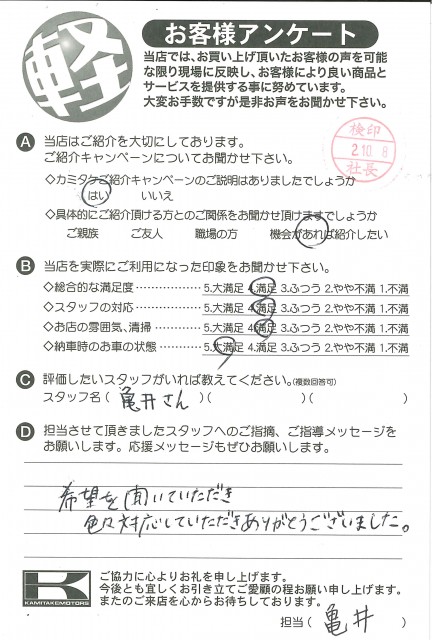 軽
お客様アンケート
当店では、お買い上げ頂いたお客様の声を可能
な限り現場に反映し、お客様により良い商品と
サービスを提供する事に努めています。
大変お手数ですが是非お声をお聞かせ下さい。
検印
2.10.8
社長
A 当店はご紹介を大切にしております。
ご紹介キャンペーンについてお聞かせ下さい。
◇カミタケご紹介キャンペーンのご説明はありましたでしょうか
はい いいえ
◇具体的にご紹介頂ける方とのご関係をお聞かせ頂けますでしょうか
ご親族 ご友人 職場の方 機会があれば紹介したい
B 当店を実際にご利用になった印象をお聞かせ下さい。
◇総合的な満足度……………5.大満足 4.満足 3.ふつう 2.やや不満 1.不満
◇スタッフの対応……………5.大満足 4.満足 3.ふつう 2.やや不満 1.不満
◇お店の雰囲気、清掃………5.大満足 4.満足 3.ふつう 2.やや不満 1.不満
◇納車時のお車の状態………5.大満足 4.満足 3.ふつう 2.やや不満 1.不満
C 評価したいスタッフがいれば教えてください。(複数回答可)
スタッフ名( 亀井さん )( )( )
D 担当させて頂きましたスタッフへのご指摘、ご指導メッセージを
お願いします。応援メッセージもぜひお願いします。
希望を聞いていただき
色々対応していただきありがとうございました。
K
KAMITAKEMOTORS
ご協力に心よりお礼を申し上げます。
今後とも宜しくお引き立てご愛顧の程お願い申し上げます。
またのご来店を心からお待ちしております。
担当( 亀井 )